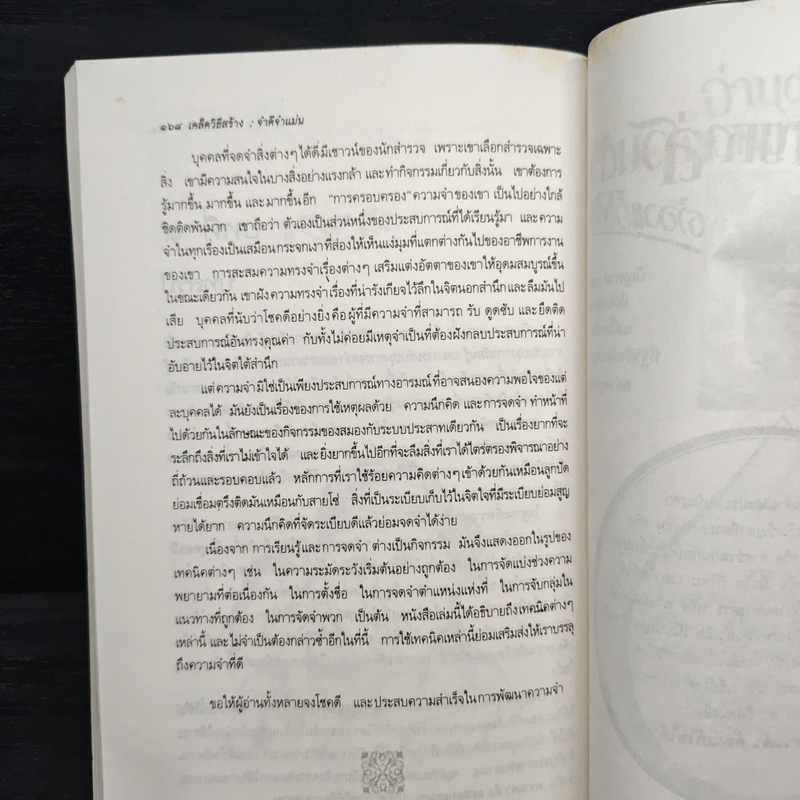 ๑๖๘ เคล็ดวิธีสร้าง : จำดีจำแม่น
บุคคลที่จดจำสิ่งต่างๆ ได้ดีมีเชาวน์ของนักสำรวจ เพราะเขาเลือกสำรวจเฉพาะ
สิ่ง เขามีความสนใจในบางสิ่งอย่างแรงกล้า และทำกิจกรรมเกี่ยวกับสิ่งนั้น เขาต้องการ
รู้มากขึ้น มากขึ้น และมากขึ้นอีก "การครอบครอง" ความจำของเขา เป็นไปอย่างใกล้
ชิดติดพันมาก เขาถือว่า ตัวเองเป็นส่วนหนึ่งของประสบการณ์ที่ได้เรียนรู้มา และความ
จำในทุกเรื่องเป็นเสมือนกระจกเงาที่ส่องให้เห็นแง่มุมที่แตกต่างกันไปของอาชีพการงาน
ของเขา การสะสมความทรงจำเรื่องต่างๆ เสริมแต่งอัตตาของเขาให้อุดมสมบูรณ์ขึ้น
ในขณะเดียวกัน เขาฝังความทรงจำเรื่องที่น่ารังเกียจไว้ลึกในจิตนอกสำนึก และลืมมันไป
เสีย บุคคลที่นับว่าโชคดีอย่างยิ่ง คือ ผู้ที่มีความจำที่สามารถ รับ ดูดซับ และยึดติด
ประสบการณ์อันทรงคุณค่า กับทั้งไม่ค่อยมีเหตุจำเป็นที่ต้องฝังกลบประสบการณ์ที่น่า
อับอายไว้ในจิตใต้สำนึก
แต่ความจำมิใช่เป็นเพียงประสบการณ์ทางอารมณ์ที่อาจสนองความพอใจของแต่
ละบุคคลได้ มันยังเป็นเรื่องของการใช้เหตุผลด้วย ความนึกคิด และการจดจำ ทำหน้าที่
ไปด้วยกันในลักษณะของกิจกรรมของสมองกับระบบประสาทเดียวกัน เป็นเรื่องยากที่จะ
ระลึกถึงสิ่งที่เราไม่เข้าใจได้ และยิ่งยากขึ้นไปอีกที่จะลืมสิ่งที่เราได้ไตร่ตรองพิจารณาอย่าง
ถี่ถ้วนและรอบคอบแล้ว หลักการที่เราใช้ร้อยความคิดต่างๆ เข้าด้วยกันเหมือนลูกปัด
ย่อมเชื่อมตรึงติดมันเหมือนกับสายโซ่ สิ่งที่เป็นระเบียบเก็บไว้ในจิตใจที่มีระเบียบย่อมสูญ
หายได้ยาก ความนึกคิดที่จัดระเบียบดีแล้วย่อมจดจำได้ง่าย
เนื่องจาก การเรียนรู้และการจดจำ ต่างเป็นกิจกรรม มันจึงแสดงออกในรูปของ
เทคนิคต่างๆ เช่น ในความระมัดระวังเริ่มต้นอย่างถูกต้อง ในการจัดแบ่งช่วงความ
พยายามที่ต่อเนื่องกัน ในการตั้งชื่อ ในการจดจำตำแหน่งแห่งที่ ในการจับกลุ่มใน
แนวทางที่ถูกต้อง ในการจัดจำพวก เป็นต้น หนังสือเล่มนี้ได้อธิบายถึงเทคนิคต่างๆ
เหล่านี้ และไม่จำเป็นต้องกล่าวซ้ำอีกในที่นี้ การใช้เทคนิคเหล่านี้ย่อมเสริมส่งให้เราบรรลุ
ถึงความจำที่ดี
ขอให้ผู้อ่านทั้งหลายจงโชคดี และประสบความสำเร็จในการพัฒนาความจำ